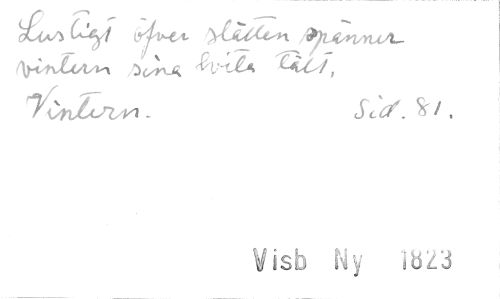 Lustigt öfver slätten spänner
vintern sina hvita tält.
Vintern. Sid. 81.
Visb Ny 1823